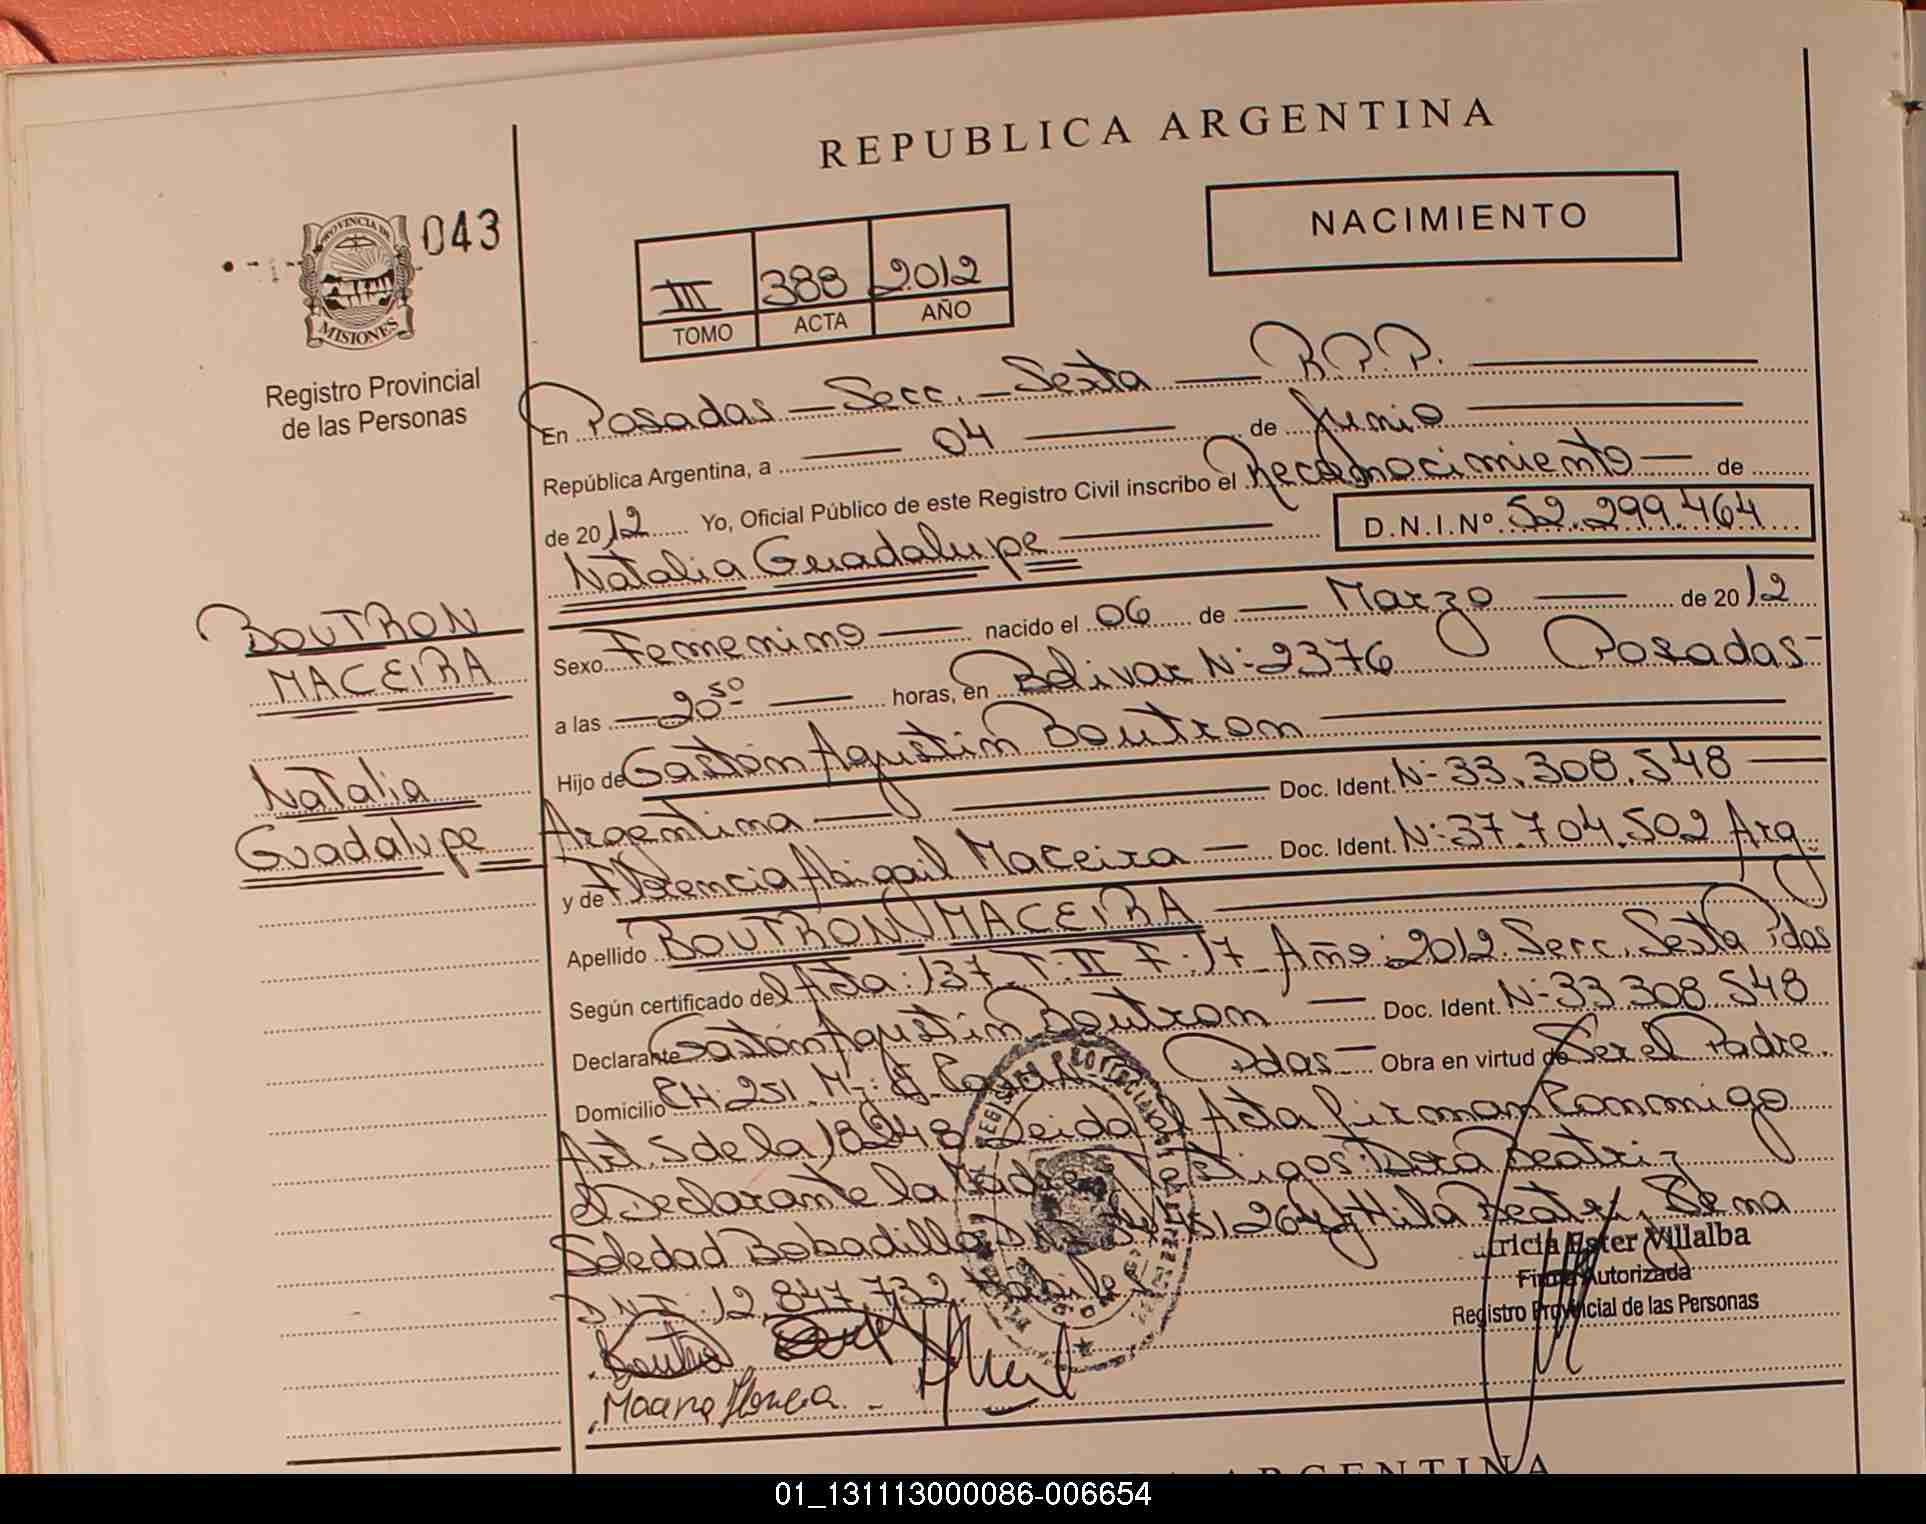 REPUBLICA ARGENTINA
PROVINCIA DE
MISIONES
043
Registro Provincial
de las Personas
NACIMIENTO
III 388 2012
TOMO ACTA AÑO
En Posadas - Secc. - Sexta - R.P.P.
República Argentina, a 04 de Junio
de 2012 Yo, Oficial Público de este Registro Civil inscribo el Reconocimiento de
Natalia Guadalupe D.N.I.Nº 52.299.464
Sexo Femenino nacido el 06 de Marzo de 2012
a las 20 50 horas, en Bolivar N: 2376 Posadas
Hijo de Gastón Agustin Boutron
Argentina Doc. Ident. N: 33.308.548
y de Florencia Abigail Maceira Doc. Ident. N: 37.704.502 Arg.
Apellido BOUTRON MACEIRA
Según certificado del Acta: 137 T: II F: 17 Año: 2012 Secc. Sexta Pdas
Declarante Gastón Agustin Boutron Doc. Ident. N: 33 308 548
Domicilio CH: 251 Pdas Obra en virtud de Ser el Padre.
Art. 5 de la 18248 Leida el Acta firman Conmigo
el Declarante la Madre Testigos: Dora Beatriz
Soledad Bobadilla
DNI: 12.847.732
BOUTRON
MACEIRA
Natalia
Guadalupe
Ester Villalba
Firma Autorizada
Registro Provincial de las Personas
ARGENTINA
01_131113000086-006654